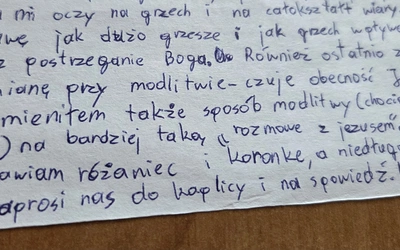 mi oczy na grzech i na całokształt wiary
jak dużo grzeszę i jak grzech wpływ
z postrzeganie Boga. Również ostatnio z
mianę przy modlitwie - czuje obecność J
mieniłem także sposób modlitwy (choci
) na bardziej taką „rozmowe z jezusem"
awiam różaniec i koronkę, a niedług
aprosi nas do kaplicy i na spowiedź.